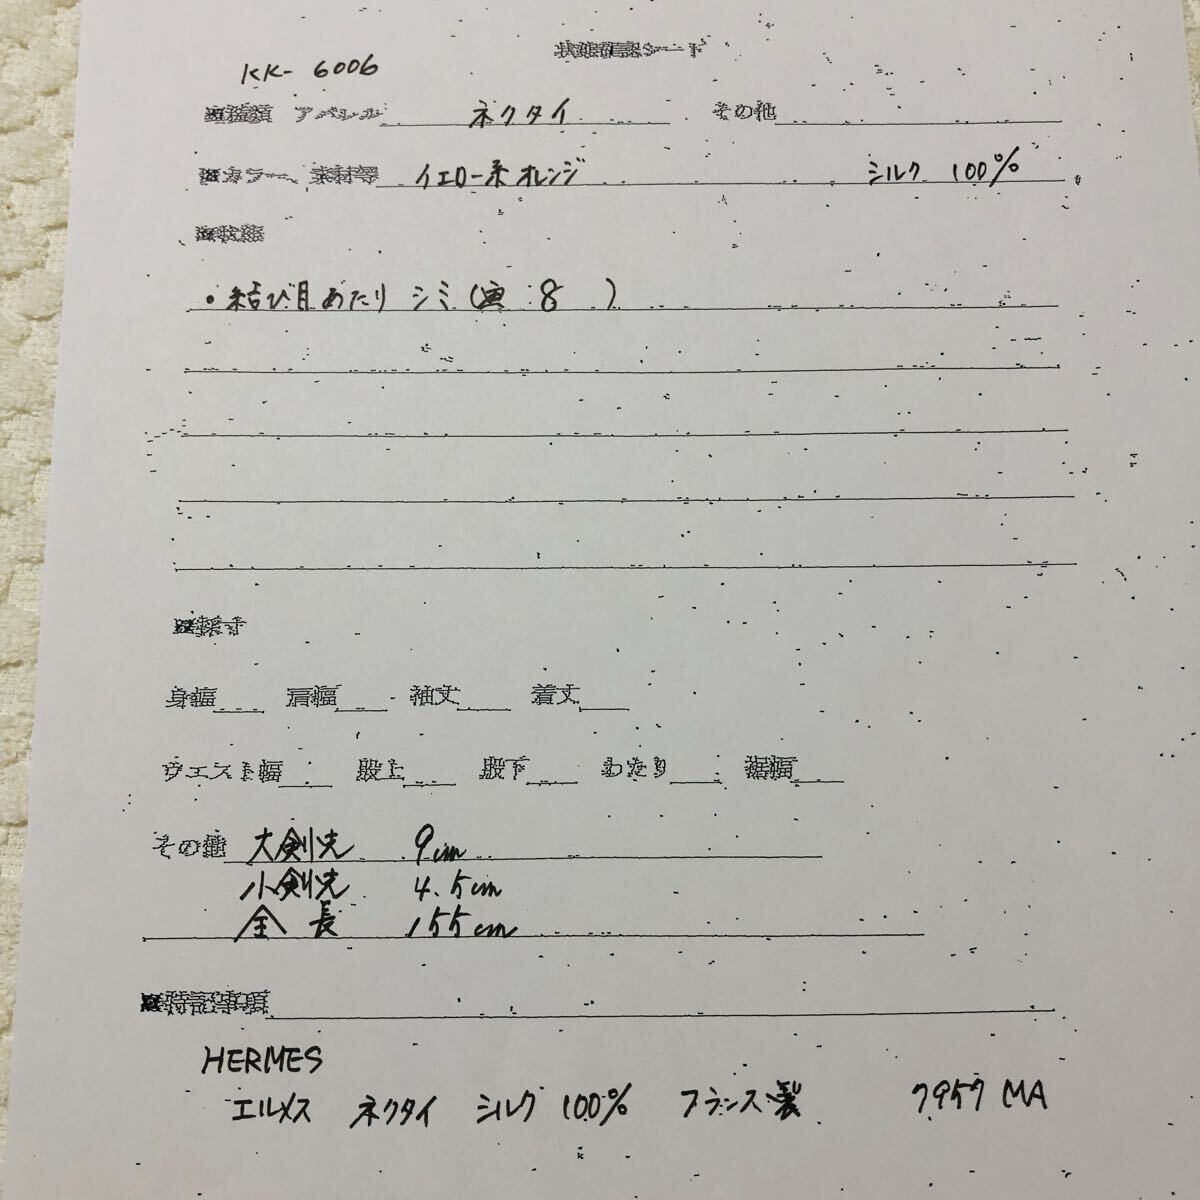 状態確認シート
KK- 6006
■種類 アパレル ネクタイ その他
■カラー、素材等 イエロー系オレンジ シルク 100%
■状態
・結び目あたり シミ(画:8 )
■採寸
身幅 肩幅 袖丈 着丈
ウエスト幅 股上 股下 わたり 裾幅
その他 大剣先 9cm
小剣先 4.5cm
全長 155cm
■特記事項
HERMES
エルメス ネクタイ シルク 100% フランス製 7957 MA